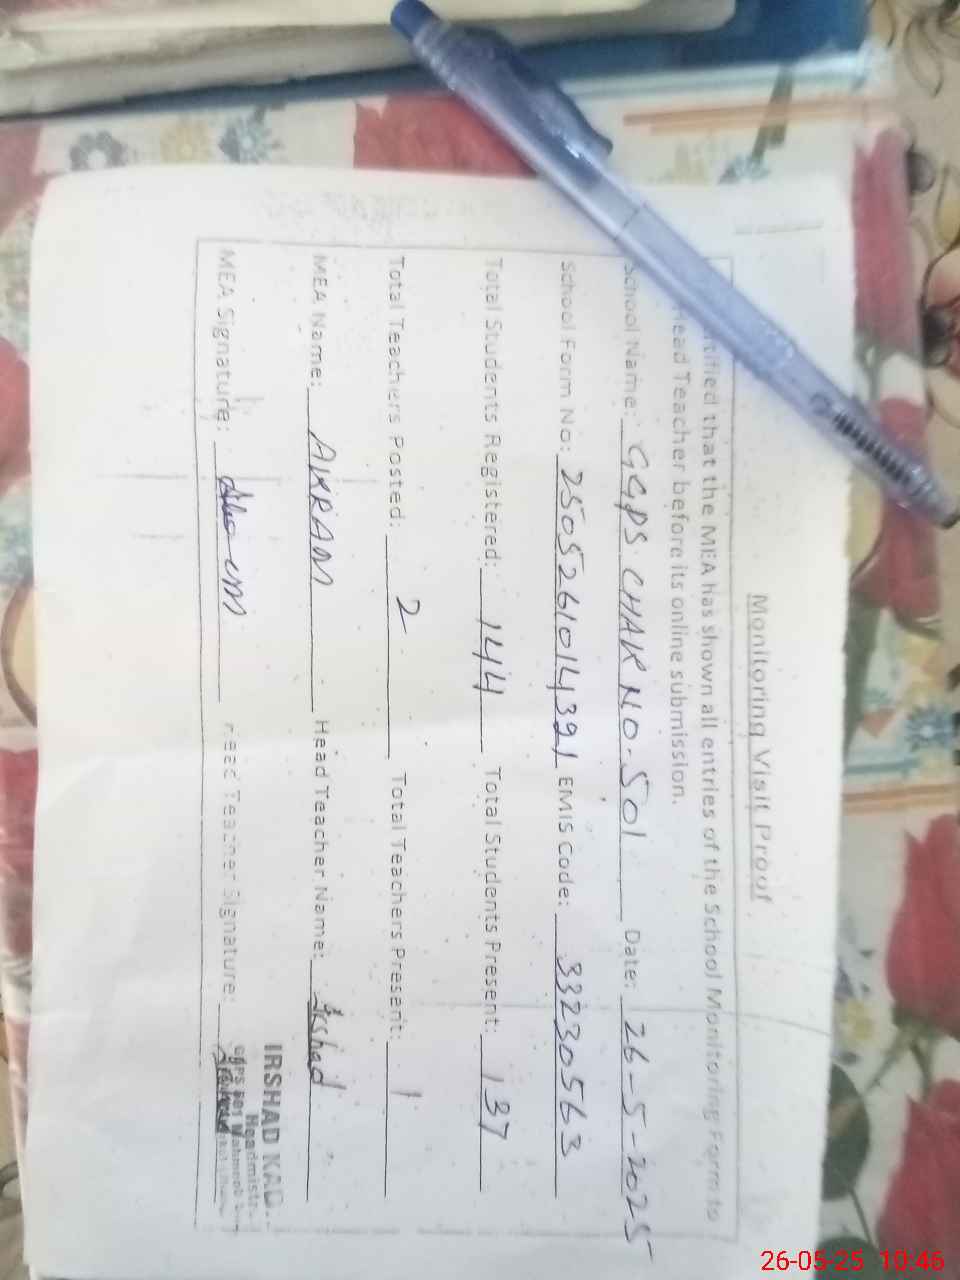 Monitoring Visit Proof
rtified that the MEA has shown all entries of the School Monitoring Form to
Head Teacher before its online submission.
School Name: GGPS CHAK NO. 501 Date: 26-5-2025
School Form No: 2505261014391 EMIS Code: 33230563
Total Students Registered: 144 Total Students Present: 137
Total Teachers Posted: 2 Total Teachers Present: 1
MEA Name: AKRAM Head Teacher Name: Irshad
MEA Signature: Head Teacher Signature:
IRSHAD
Headmistr
501
26-05-25 10:46